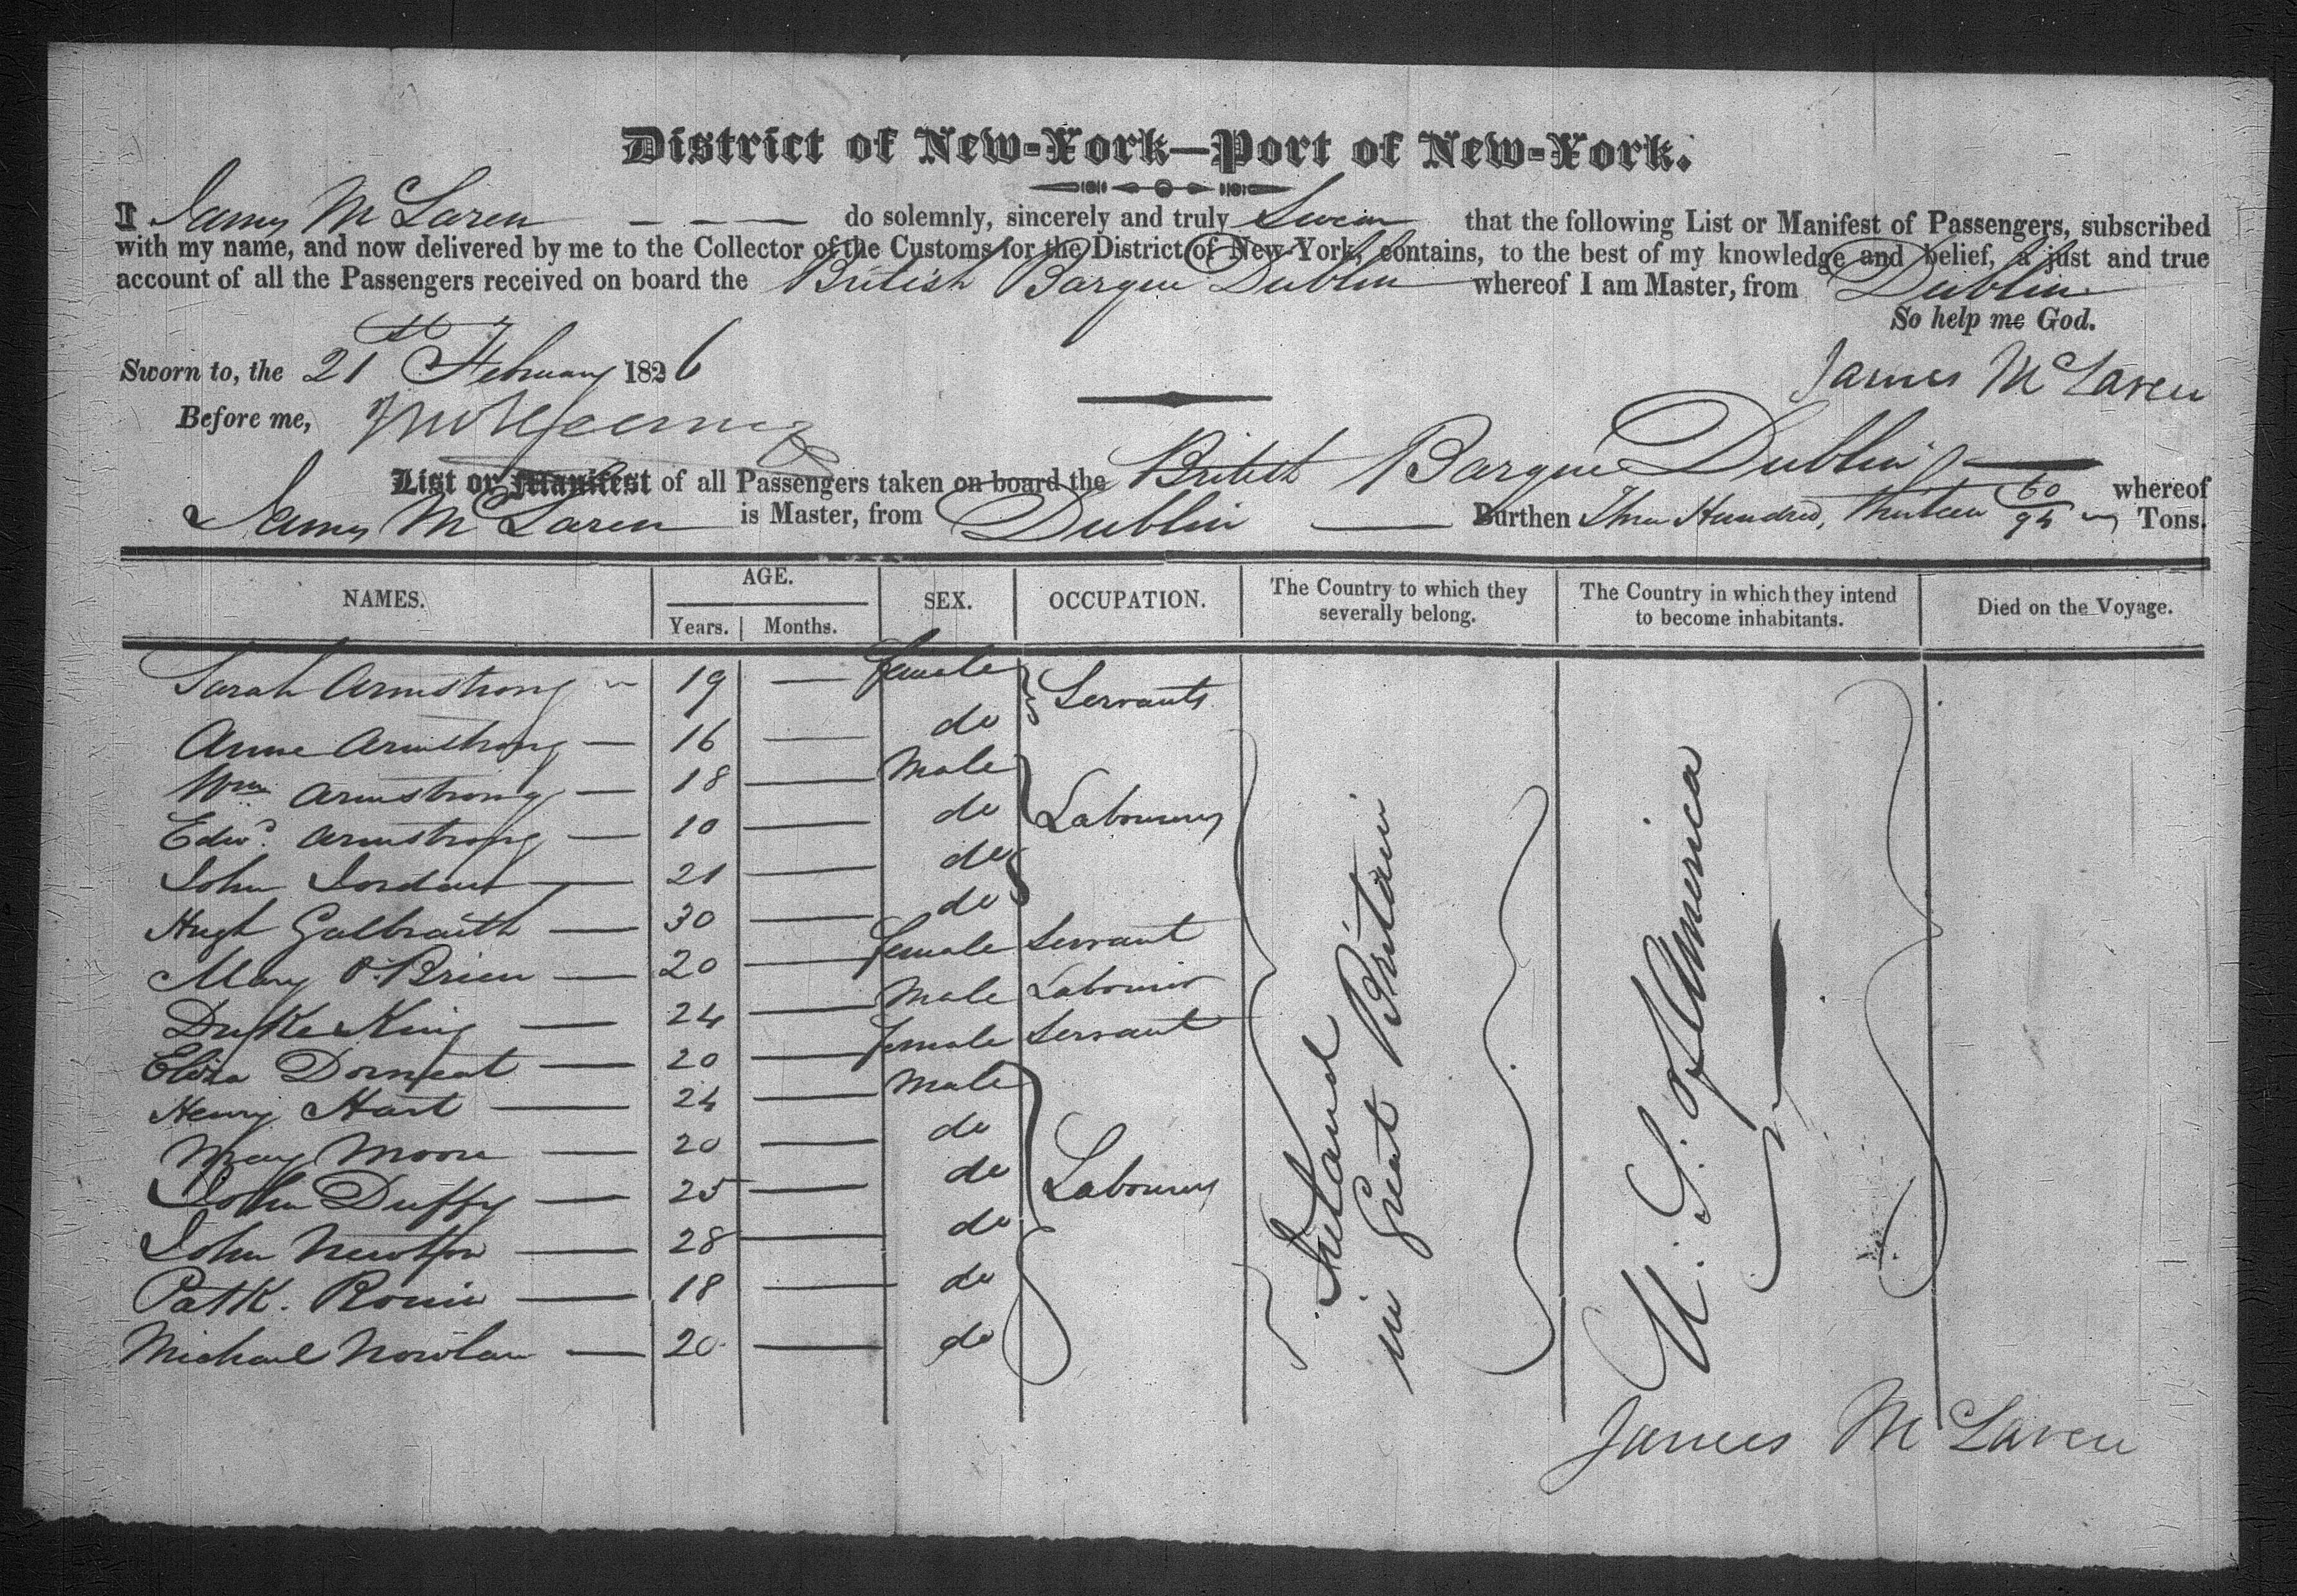 District of New-York—Port of New-York.
I James McLaren — — — do solemnly, sincerely and truly Swear that the following List or Manifest of Passengers, subscribed
with my name, and now delivered by me to the Collector of the Customs for the District of New-York, contains, to the best of my knowledge and belief, a just and true
account of all the Passengers received on board the British Barque Dublin whereof I am Master, from Dublin
So help me God.
Sworn to, the 21st February 1826
James McLaren
Before me,
List or Manifest of all Passengers taken on board the British Barque Dublin — whereof
James McLaren is Master, from Dublin — Burthen Three Hundred, Thirteen Tons.
NAMES. AGE. SEX. OCCUPATION. The Country to which they severally belong. The Country in which they intend to become inhabitants. Died on the Voyage.
Years. Months.
Sarah Armstrong — 19 — female Servants
Anne Armstrong — 16 — do
Wm Armstrong — 18 — Male Labourers
Edwd. Armstrong — 10 — do
John Jordan — 21 — do
Hugh Galbraith — 30 — do
Mary O'Brien — 20 — female Servant
Duke King — 24 — Male Labourer
Eliza — 20 — female Servant
Henry Hart — 24 — Male
Moore — 20 — do
John Duffy — 25 — do Labourers
John Newton — 28 — do
Patk. — 18 — do
Michael Nowlan — 20 — do
Ireland
in Great Britain
U. S. of America
James McLaren